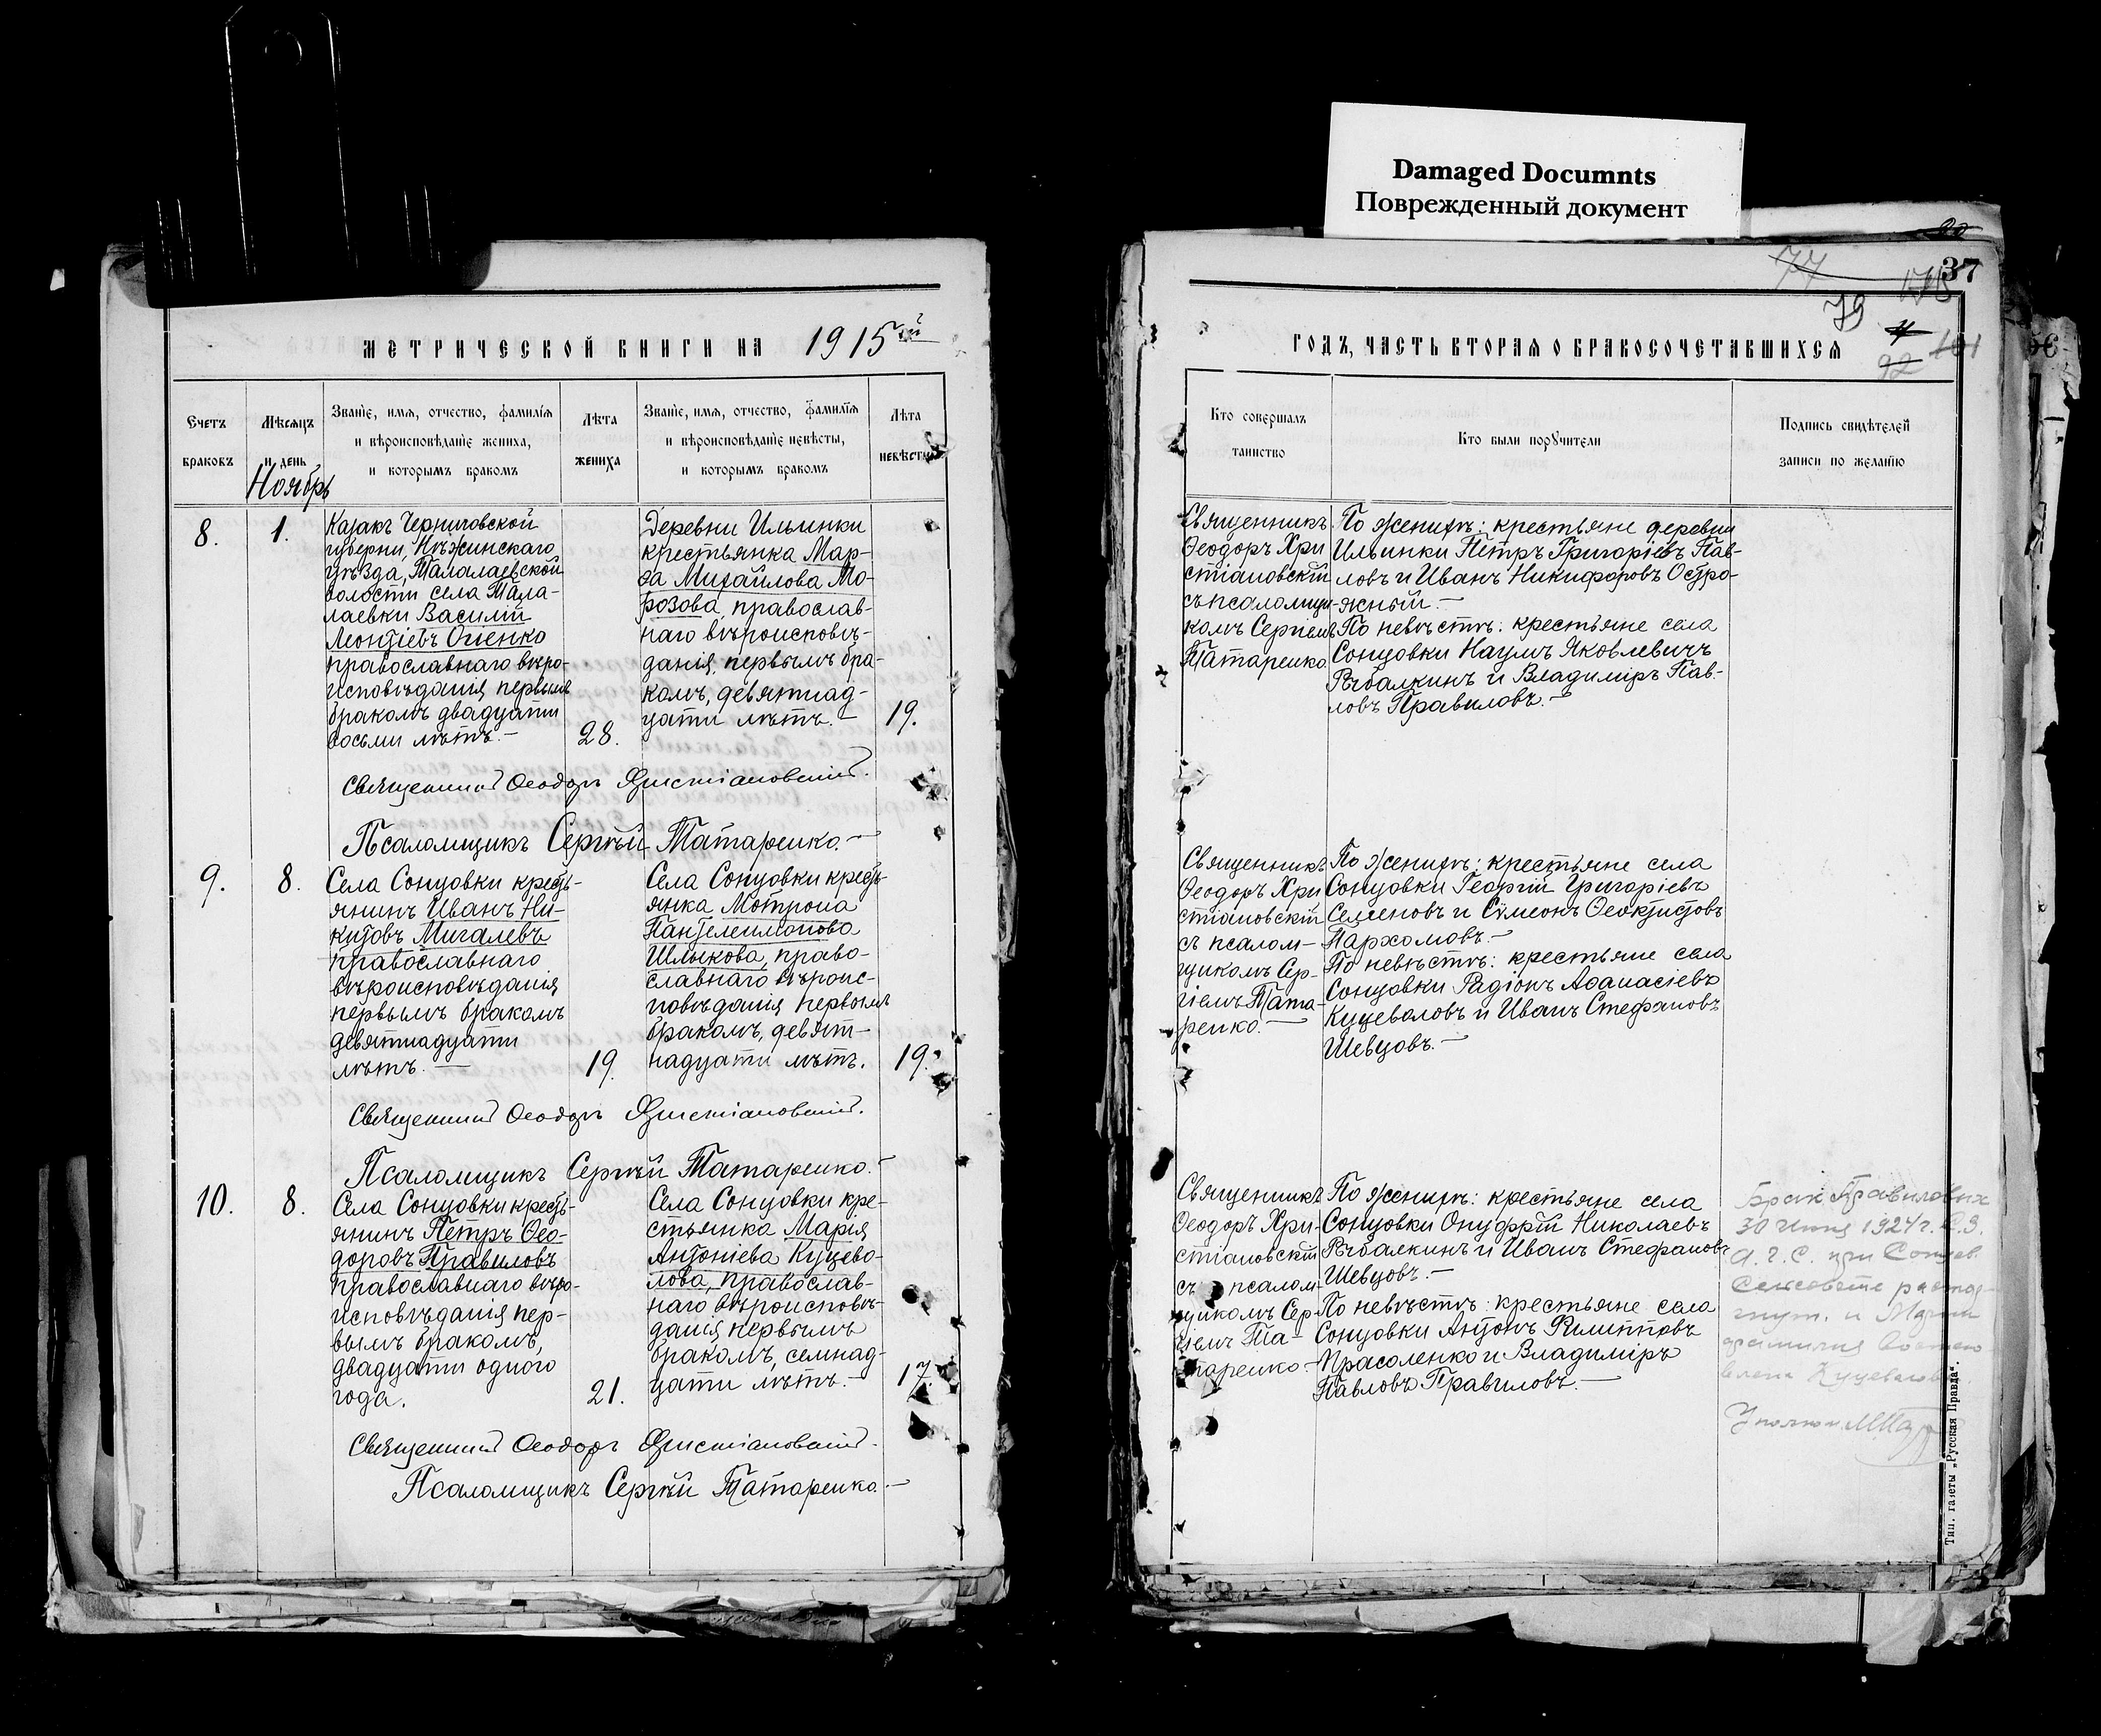 Damaged Documnts
Поврежденный документ
37
77
79
92
МЕТРИЧЕСКОЙ КНИГИ НА 1915 ый
ГОДЪ, ЧАСТЬ ВТОРАЯ О БРАКОСОЧЕТАВШИХСЯ
Счетъ браковъ
Мѣсяцъ и день
Званіе, имя, отчество, фамилія и вѣроисповѣданіе жениха, и которымъ бракомъ
Лѣта жениха
Званіе, имя, отчество, фамилія и вѣроисповѣданіе невѣсты, и которымъ бракомъ
Лѣта невѣсты
Кто совершалъ таинство
Кто были поручители
Подпись свидѣтелей записи по желанію
Ноябрь
8.
1.
Казакъ Черниговской
губерніи, Нѣжинскаго
уѣзда, Талалаевской
волости села Тала-
лаевки Василій
Леонтіевъ Огіенко
православнаго вѣро-
исповѣданія первымъ
бракомъ двадцати
восьми лѣтъ.—
28.
Деревни Ильинки
крестьянка Мар-
ѳа Михайлова Мо-
розова, православ-
наго вѣроисповѣ-
данія, первымъ бра-
комъ, девятнад-
цати лѣтъ.—
19.
Священникъ
Ѳеодоръ Хри
стіановскій
съ псаломщи-
комъ Сергіемъ
Татаренко
По женихѣ: крестьяне деревни
Ильинки Петръ Григоріевъ Пав-
ловъ и Иванъ Никифоровъ Остро-
жный.—
По невѣстѣ: крестьяне села
Сонцовки Наумъ Яковлевичъ
Рыбалкинъ и Владиміръ Пав-
ловъ Правиловъ.—
Священникъ Ѳеодоръ Христіановскій.
Псаломщикъ Сергѣй Татаренко.—
9.
8.
Села Сонцовки кресть-
янинъ Иванъ Ни-
китовъ Мигалевъ
православнаго
вѣроисповѣданія
первымъ бракомъ
девятнадцати
лѣтъ.—
19.
Села Сонцовки кресть-
янка Мотрона
Пантелеимонова
Шлыкова, право-
славнаго вѣроис-
повѣданія первымъ
бракомъ, девят-
надцати лѣтъ.
19.
Священникъ
Ѳеодоръ Хри
стіановскій
съ псалом-
щикомъ Сер-
гіемъ Тата-
ренко.—
По женихѣ: крестьяне села
Сонцовки Георгій Григоріевъ
Семеновъ и Сѵмеонъ Ѳеоктистовъ
Пархомовъ.—
По невѣстѣ: крестьяне села
Сонцовки Радіонъ Аѳанасіевъ
Куцеваловъ и Иванъ Стефановъ
Шевцовъ.—
Священникъ Ѳеодоръ Христіановскій.
Псаломщикъ Сергѣй Татаренко.—
10.
8.
Села Сонцовки кресть-
янинъ Петръ Ѳео-
доровъ Правиловъ
православнаго вѣро-
исповѣданія пер-
вымъ бракомъ,
двадцати одного
года.
21.
Села Сонцовки кре-
стьянка Марія
Антоніева Куцева-
лова, православ-
наго вѣроисповѣ-
данія первымъ
бракомъ, семнад-
цати лѣтъ.—
17.
Священникъ
Ѳеодоръ Хри-
стіановскій
съ псалом-
щикомъ Сер-
гіемъ Та-
таренко.—
По женихѣ: крестьяне села
Сонцовки Онуфрій Николаевъ
Рыбалкинъ и Иванъ Стефановъ
Шевцовъ.—
По невѣстѣ: крестьяне села
Сонцовки Антонъ Филипповъ
Прасоленко и Владиміръ
Павловъ Правиловъ.—
Брак Правиловых
30 1924 г.
при Сонцов.
Сельсовете растор-
гнут. и Марии
фамилия
Куцевалова
Священникъ Ѳеодоръ Христіановскій.
Псаломщикъ Сергѣй Татаренко.—
Тип. газеты „Русская Правда“.